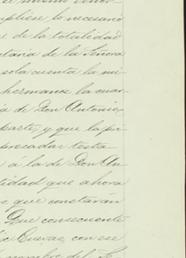 mpliese lo necesario
e de la totalidad
elaria de la Señora
sola cuenta la mi-
hermana la cuar
a de Don Antonio
parte, y que la pri
precadar testa
á la de Don An
tidad que ahora
e que constarán
Que consecuente
Cuevas, con ese
nombre del S